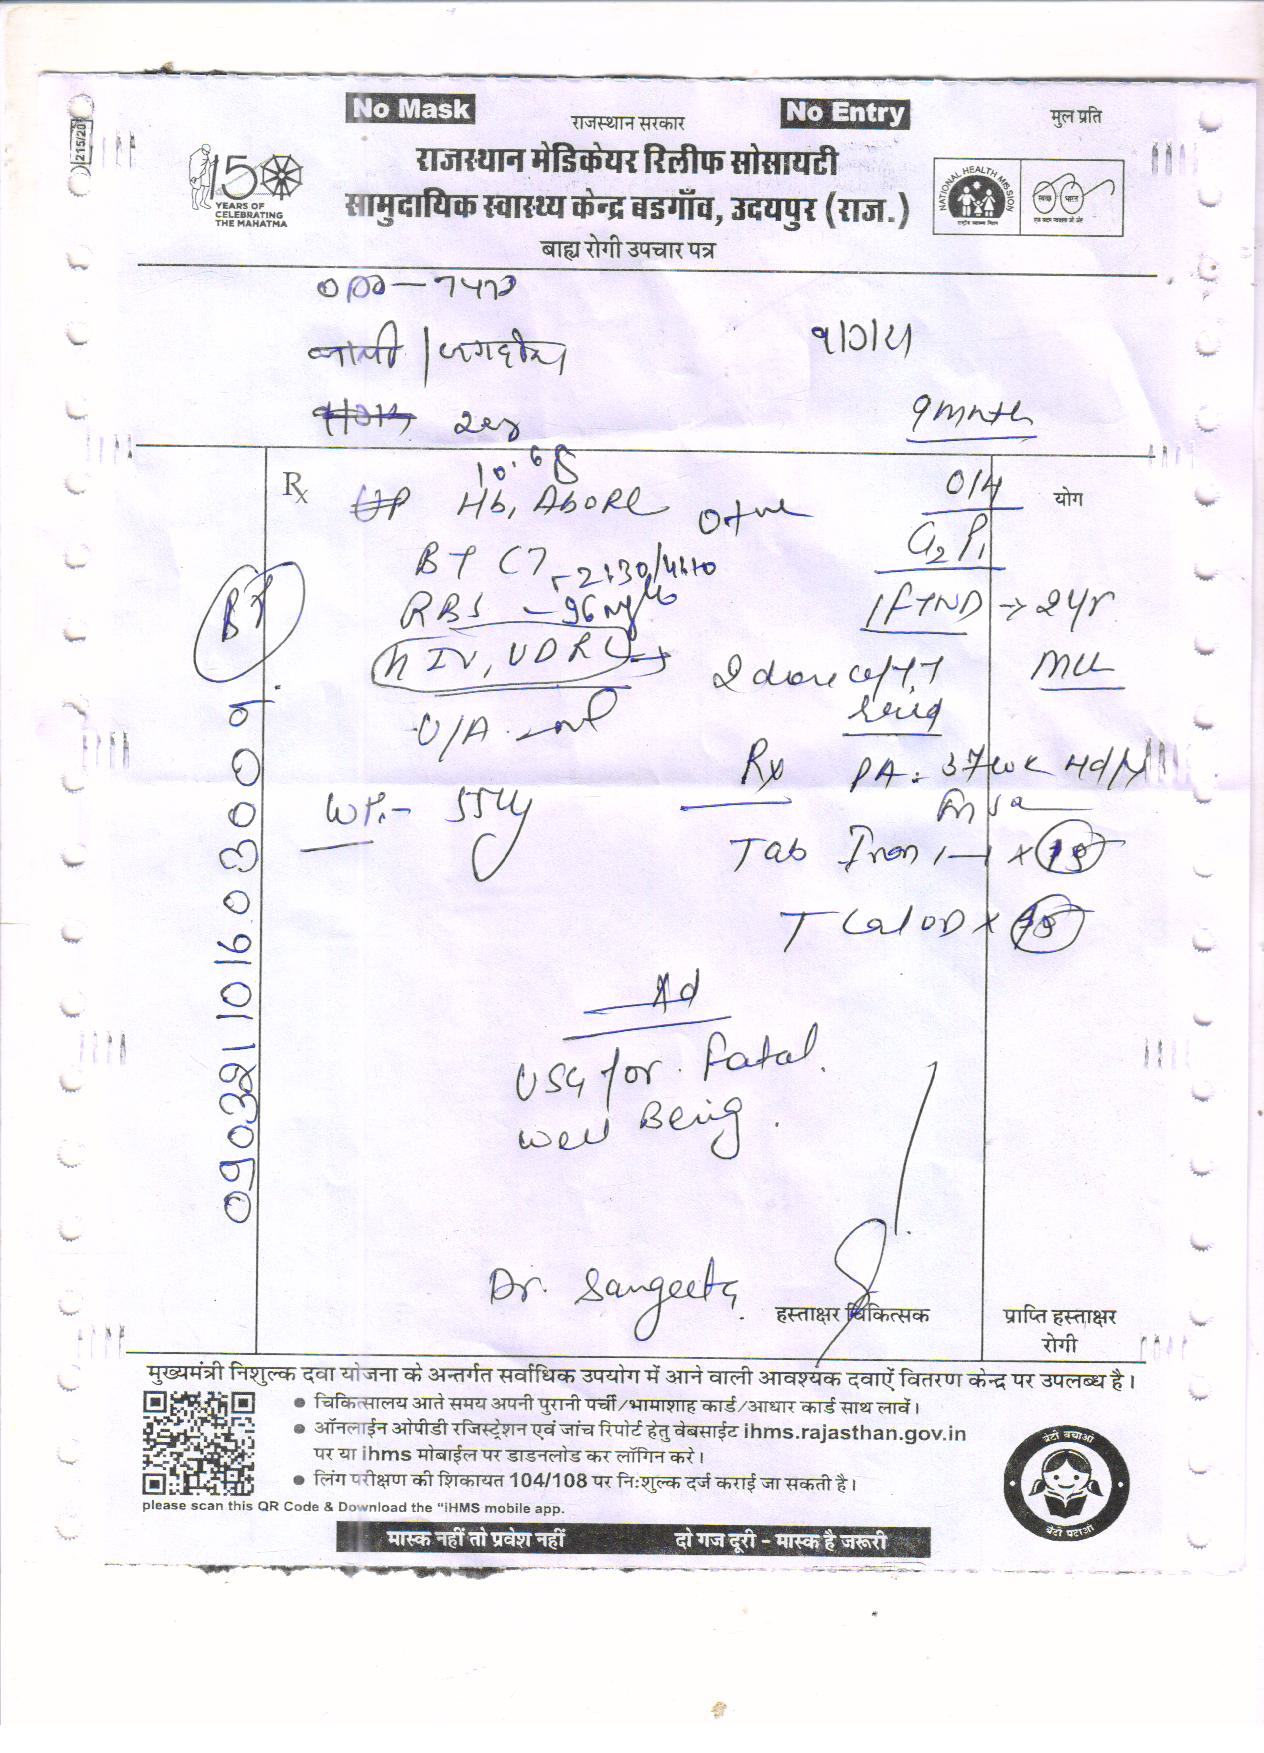 No Mask
राजस्थान सरकार
No Entry
मुल प्रति
215/20
150
YEARS OF
CELEBRATING
THE MAHATMA
राजस्थान मेडिकेयर रिलीफ सोसायटी
सामुदायिक स्वास्थ्य केन्द्र बडगाँव, उदयपुर (राज.)
बाह्य रोगी उपचार पत्र
NATIONAL HEALTH MISSION
स्वच्छ भारत
9 month
Rx
10.6
Hb, ABORh O+ve
योग
G2 P1
BT CT - 2:30/4:10
BT
RBS - 96 mg
1 FTND → 2yr
HIV, VDRL
2 dose of TT
MCH
U/A
Rx PA: 37 wk 4d
Wt.-
Tab Iron 1-1 x 15
T Cal OD x
090321101603009
Ad
USG for. Fatal.
well Being.
Dr. Sangeeta.
हस्ताक्षर चिकित्सक
प्राप्ति हस्ताक्षर
रोगी
मुख्यमंत्री निशुल्क दवा योजना के अन्तर्गत सर्वाधिक उपयोग में आने वाली आवश्यक दवाऐं वितरण केन्द्र पर उपलब्ध है।
• चिकित्सालय आते समय अपनी पुरानी पर्ची/भामाशाह कार्ड/आधार कार्ड साथ लावें।
• ऑनलाईन ओपीडी रजिस्ट्रेशन एवं जांच रिपोर्ट हेतु वेबसाईट ihms.rajasthan.gov.in
पर या ihms मोबाईल पर डाडनलोड कर लॉगिन करे।
• लिंग परीक्षण की शिकायत 104/108 पर नि:शुल्क दर्ज कराई जा सकती है।
please scan this QR Code & Download the "iHMS mobile app.
बेटी बचाओ
बेटी पढाओ
मास्क नहीं तो प्रवेश नहीं
दो गज दूरी - मास्क है जरूरी